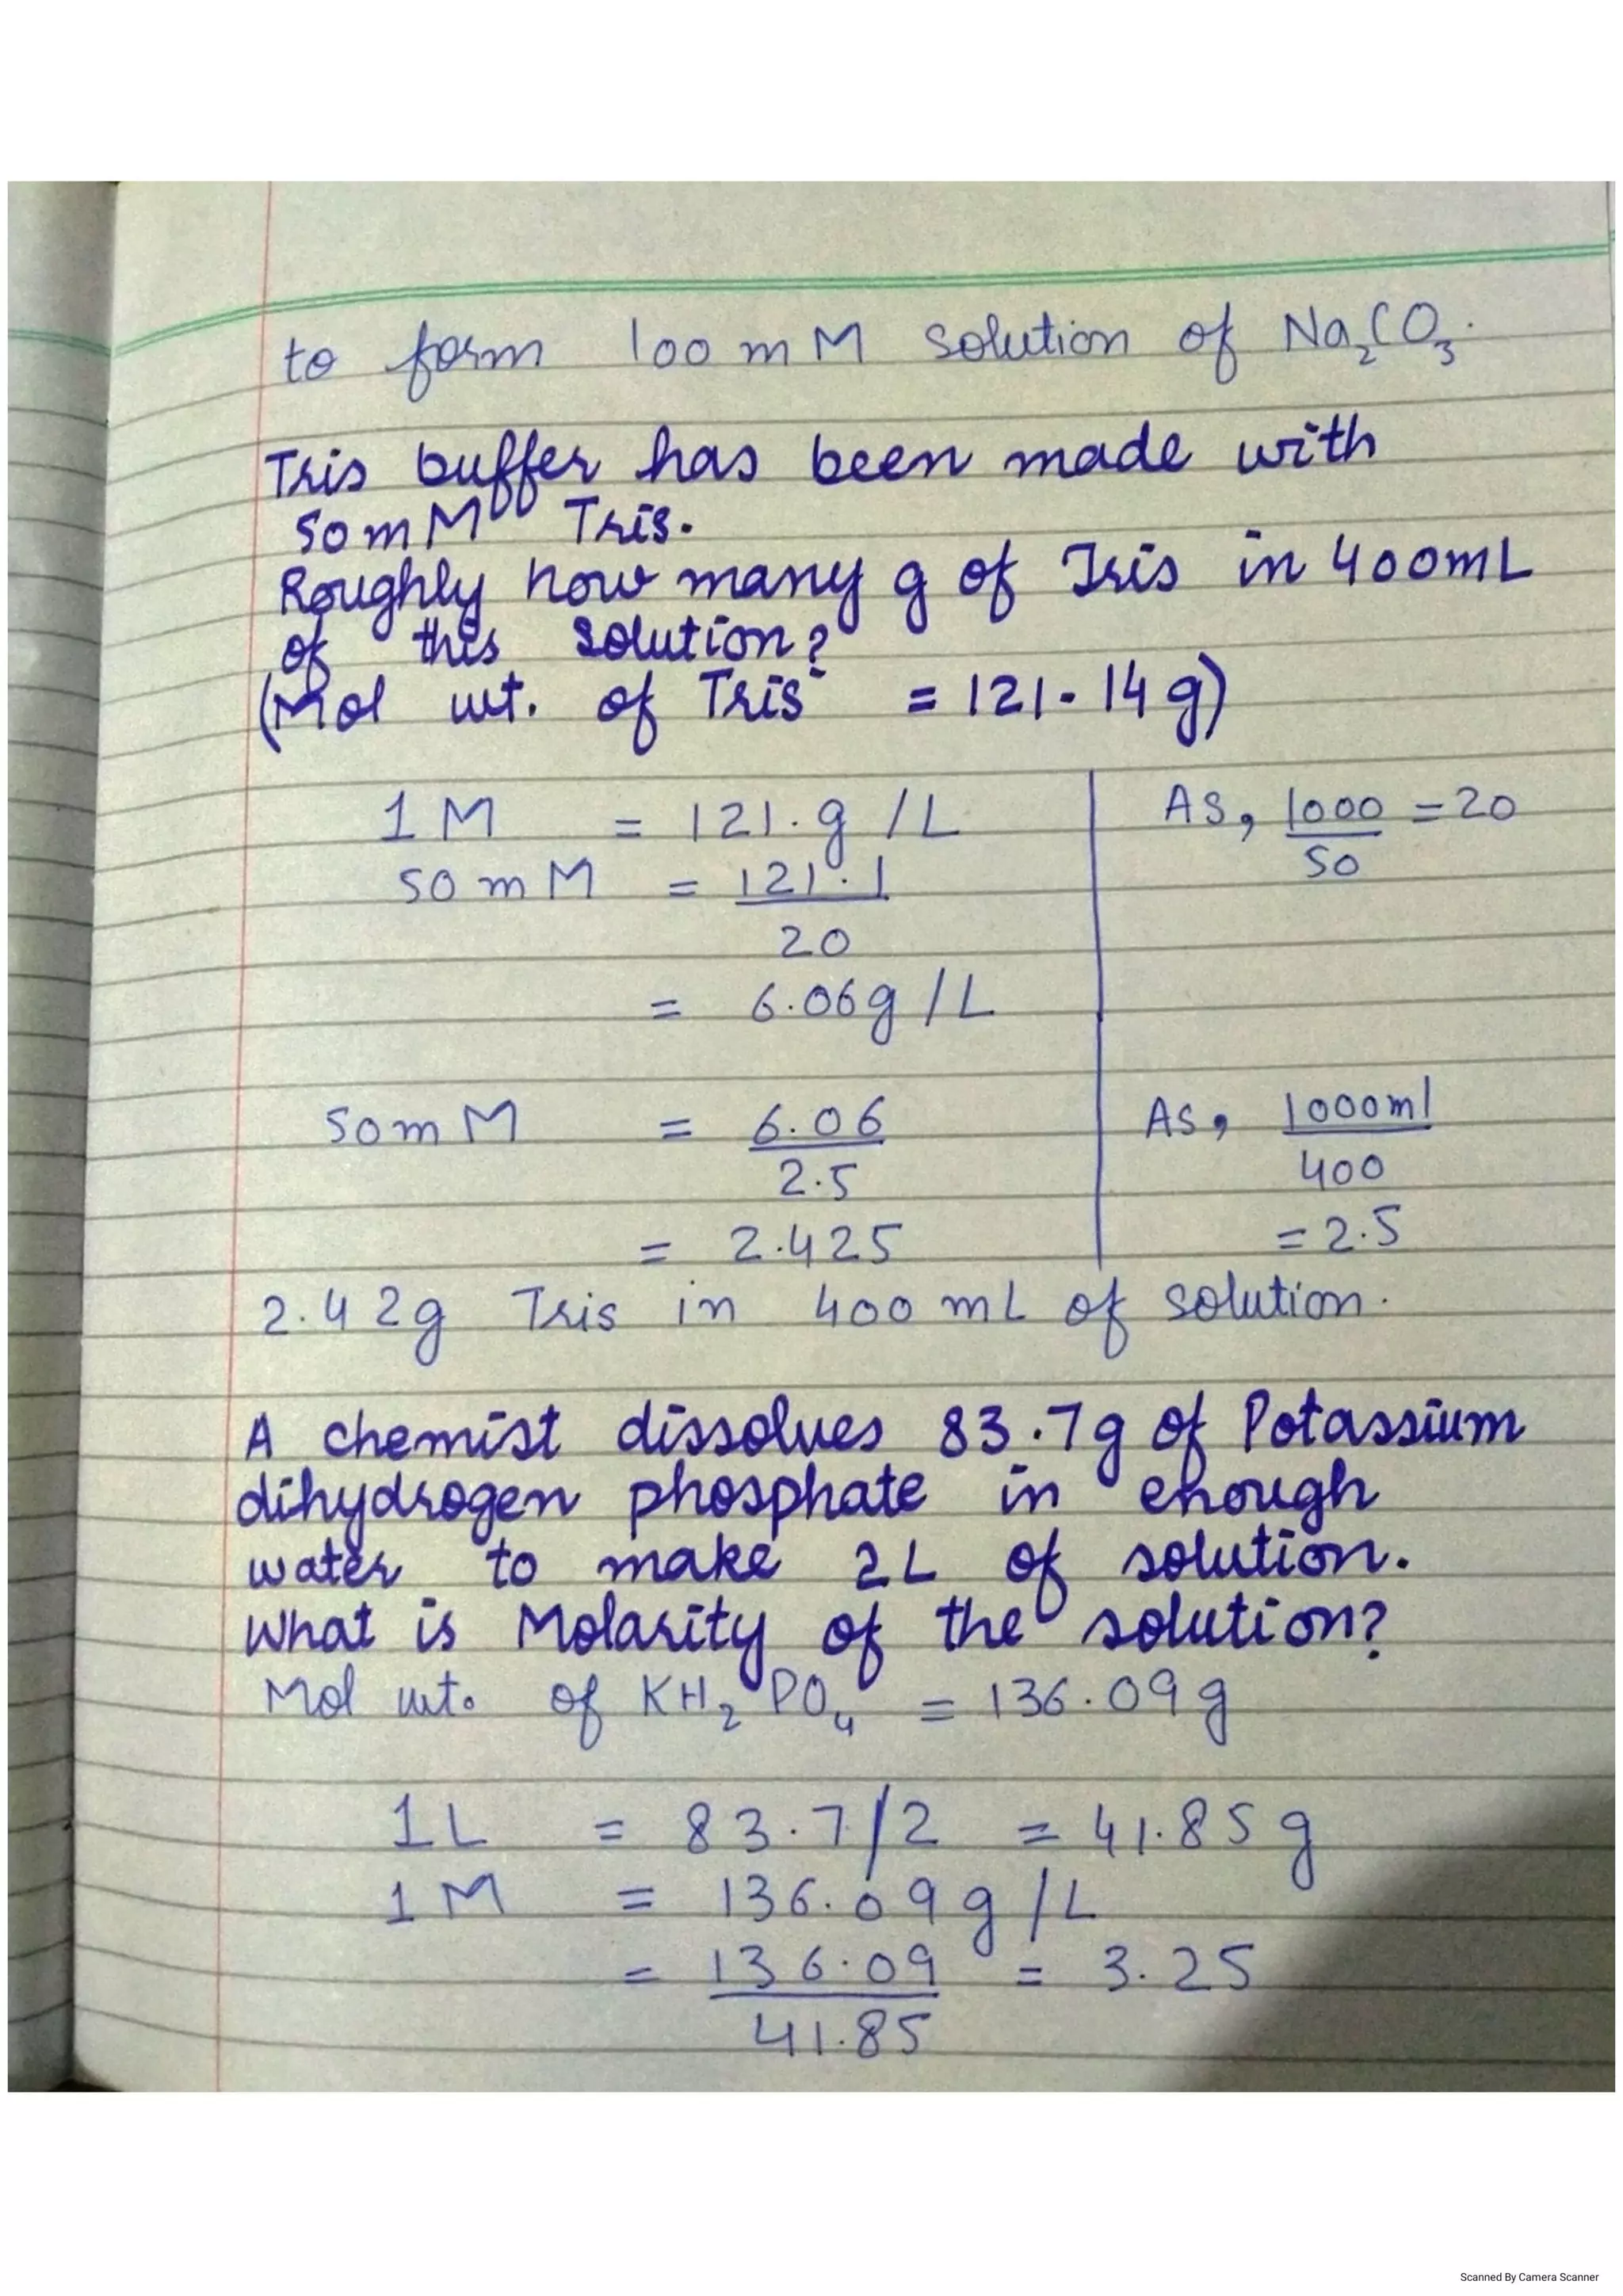 to form 100 mM solution of Na₂CO₃.
Tris buffer has been made with
50mM Tris.
Roughly how many g of Tris in 400mL
of this solution?
(Mol wt. of Tris = 121.14g)
1M = 121.g/L As, 1000/50 = 20
50mM = 121.1/20
= 6.06g/L
50mM = 6.06/2.5 As, 1000ml/400
= 2.425 = 2.5
2.42g Tris in 400mL of solution.
A chemist dissolves 83.7g of Potassium
dihydrogen phosphate in enough
water to make 2L of solution.
What is Molarity of the solution?
Mol wt. of KH₂PO₄ = 136.09g
1L = 83.7/2 = 41.85g
1M = 136.09g/L
= 136.09/41.85 = 3.25
Scanned By Camera Scanner